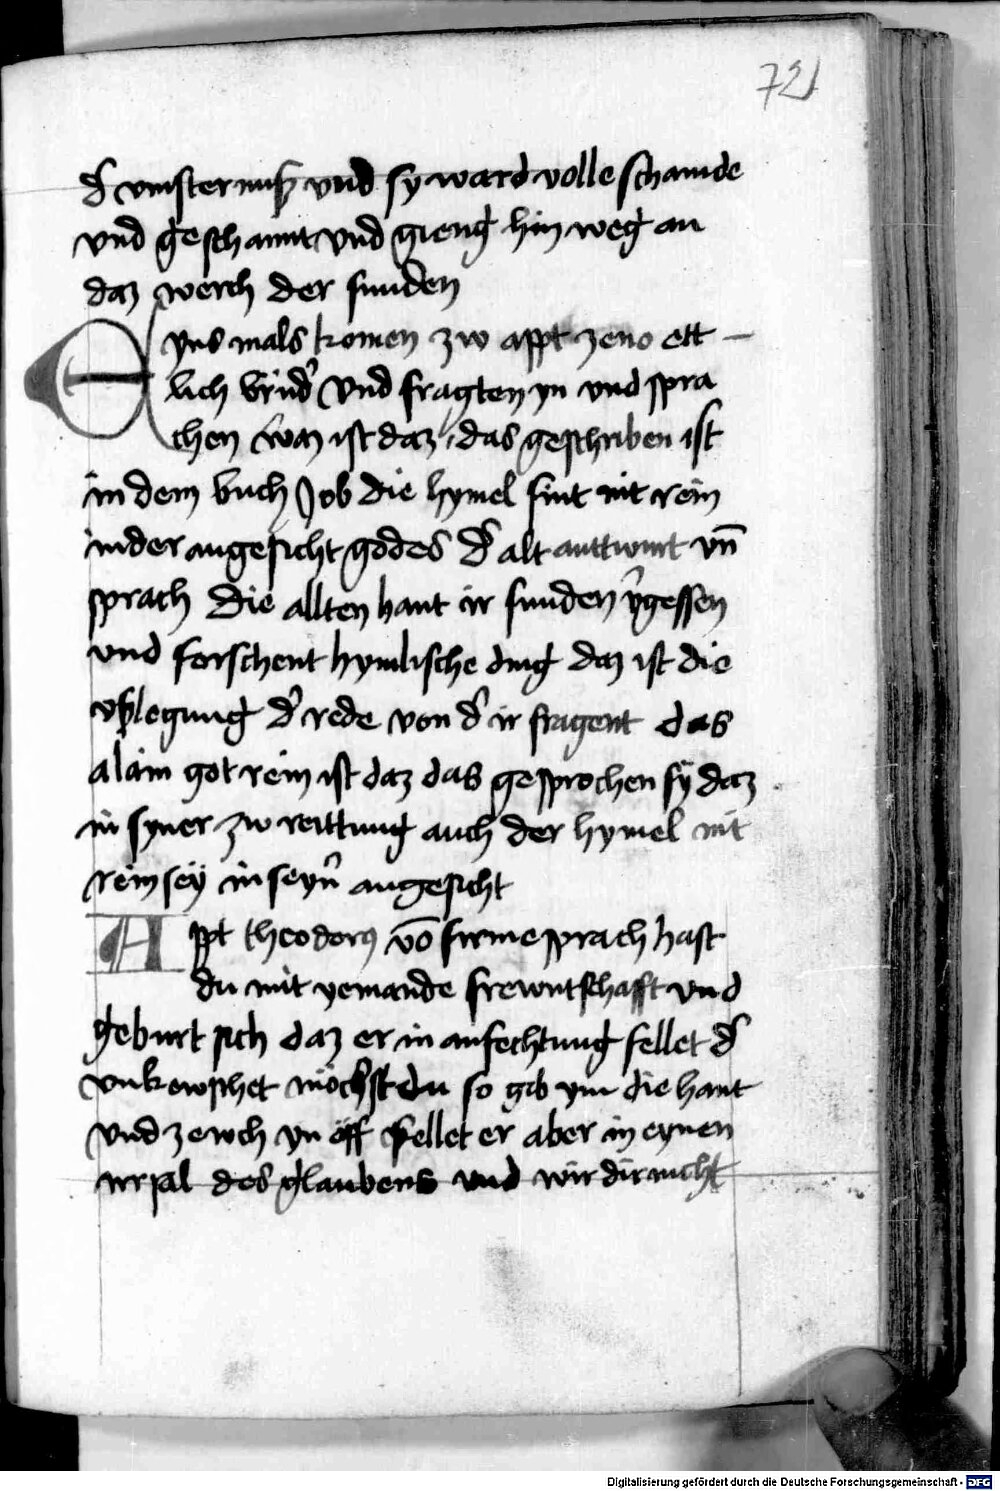 72
d' vinsternuß vnd sy ward volle schamde
vnd geschamt vnd gieng hin weg an
daz werch der sunden
Eyns mals komen zw appt zeno ett –
lich brud' Vnd fragten yn vnd spra
chen waz ist daz, das geschriben ist
in dem buch Job die hymel sint nit rein
in der angesicht godes D' alt anttwurt vn̄
sprach Die allten hant ir sunden v'gessen
vnd forschent hymlische ding daz ist die
vßlegung d' rede von d' ir fragent das
alain got rein ist daz das gesprochen sÿ daz
in syner zw reittung auch der hymel nit
rein seÿ in seyn' angesicht
Appt theodorꝰ vō firme sprach hast
du mit yemande frewntschafft vnd
geburt sich daz er in anfechtung fellet d'
vnkewschet möchst du so gib ym die hant
vnd zewch yn öff fellet er aber in eynen
irrsal des glaubens vnd wir dir nicht
Digitalisierung gefördert durch die Deutsche Forschungsgemeinschaft - DFG